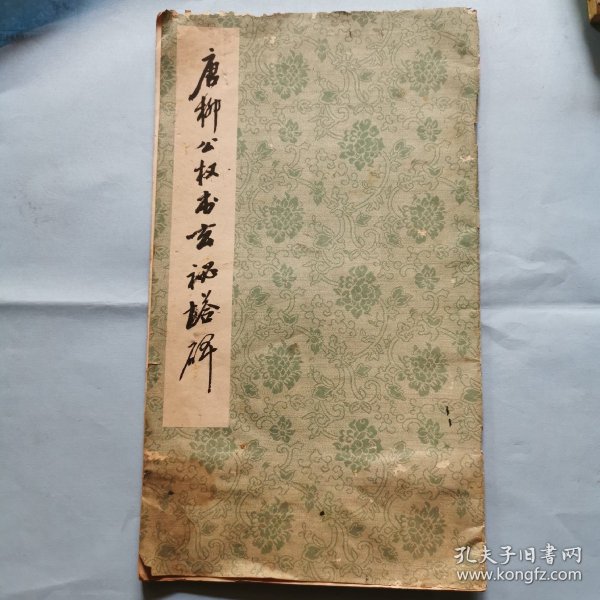 唐柳公权书玄秘塔碑
孔夫子旧書网
www.kongfz.com